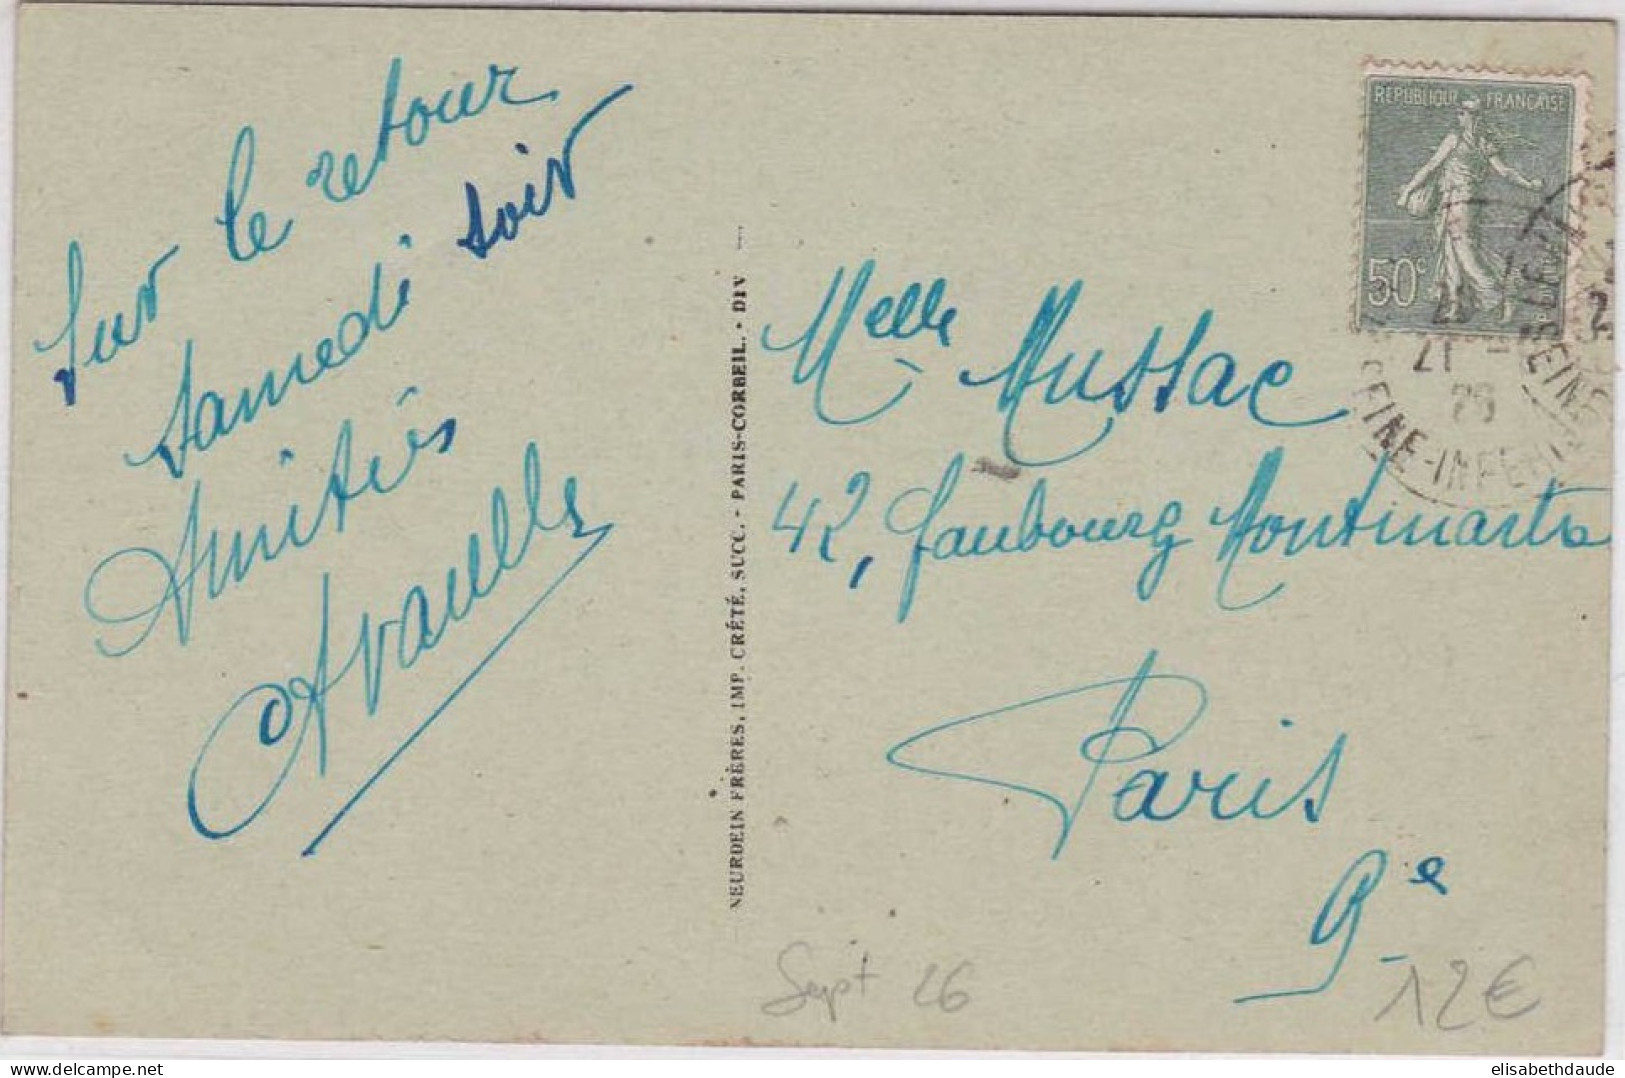 Sur le retour
samedi soir
Amitiés
NEURDEIN FRÈRES, IMP. CRÉTÉ, SUCC. - PARIS-CORBEIL. • DIV
RÉPUBLIQUE FRANÇAISE
50c
SEINE-INFE
Melle Mussac
42, faubourg Montmartre
Paris
9e
Sept 26
12€
elisabethdaude